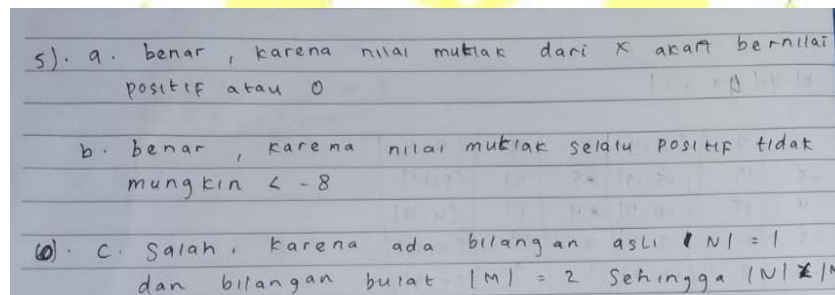 5). a. benar, karena nilai mutlak dari x akan bernilai
positif atau 0
b. benar, karena nilai mutlak selalu positif tidak
mungkin < -8
6). c. Salah, karena ada bilangan asli |N| = 1
dan bilangan bulat |M| = 2 Sehingga |N| ≱ |M